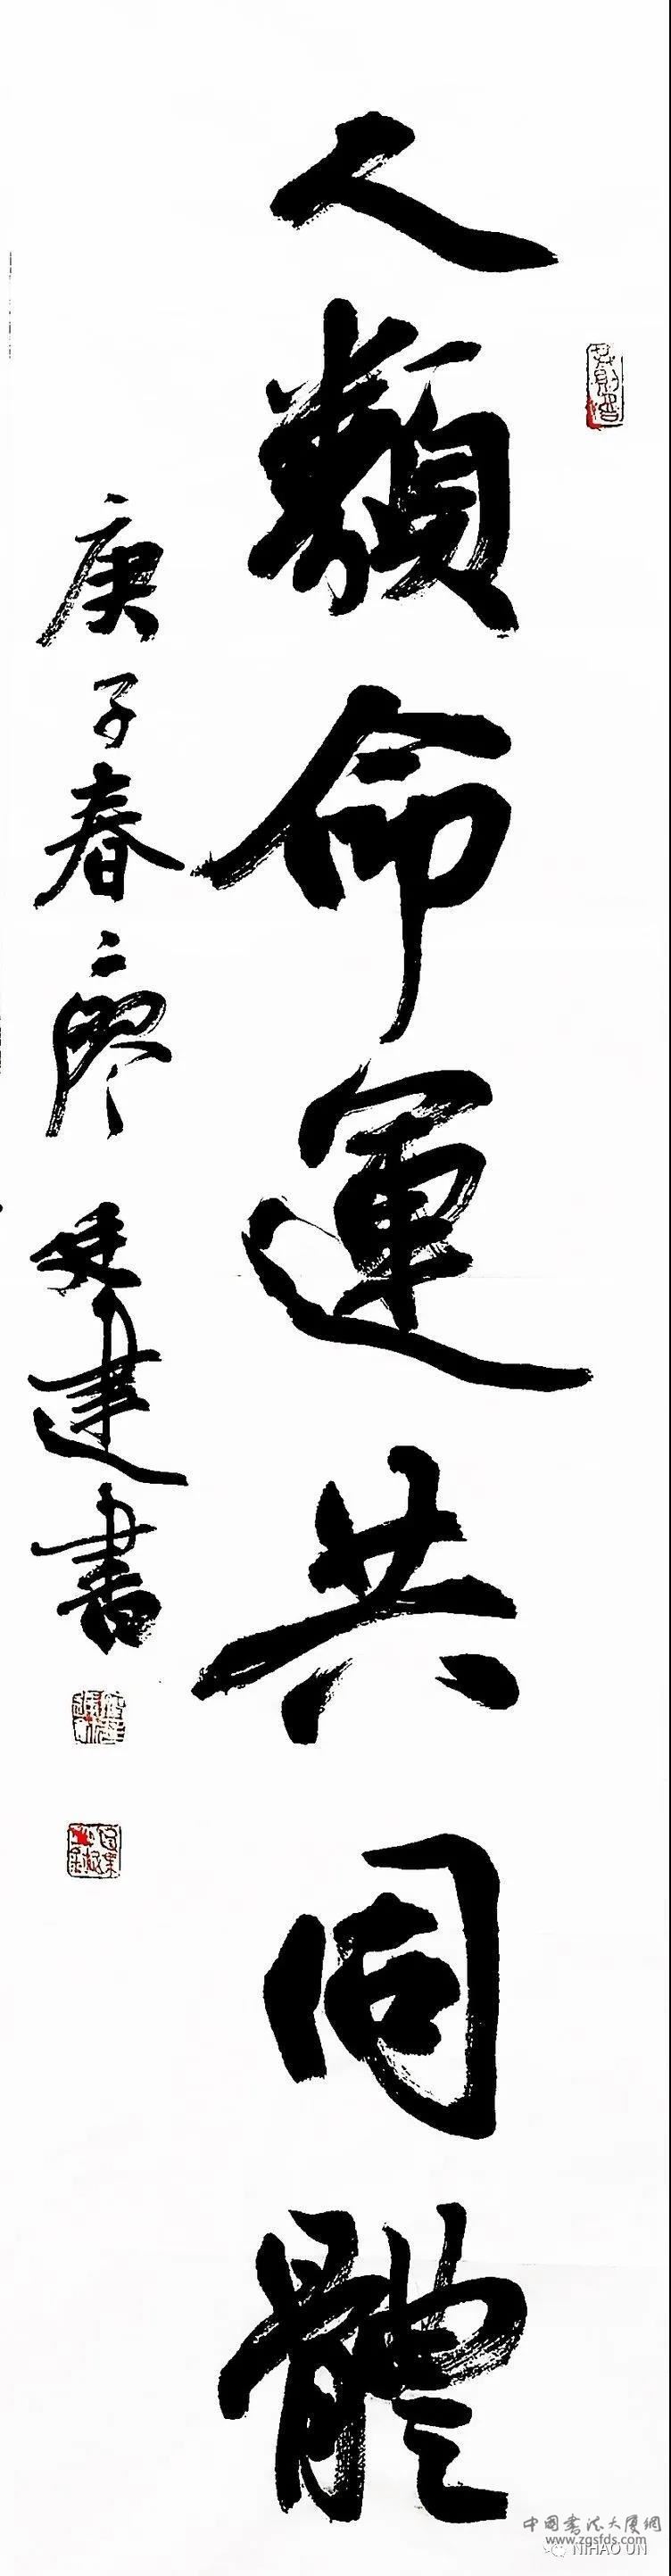 人類命運共同體
庚子春廖廷建書
中国书法大厦網
www.zgsfds.com
NIHAO UN